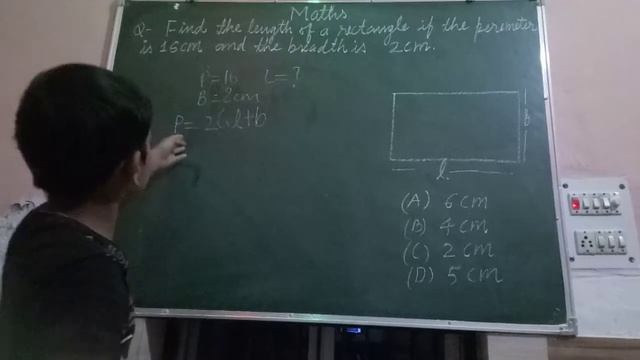 Maths
Q- Find the length of a rectangle if the peremeter
is 16cm and the breadth is 2cm.
P = 16 L = ?
B = 2cm
P = 2(l+b
b
l
(A) 6cm
(B) 4cm
(C) 2cm
(D) 5cm